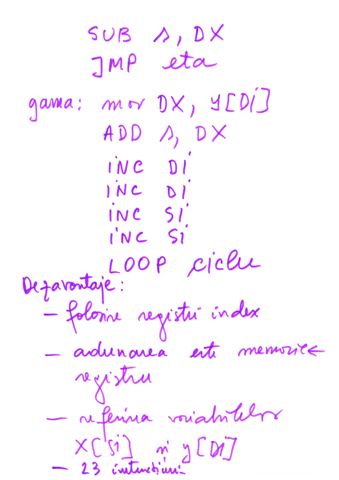 SUB s, DX
JMP eta
gama: mov DX, y[DI]
ADD s, DX
INC DI
INC DI
INC SI
INC SI
LOOP ciclu
Dezavantaje:
- folosire registri index
- adunarea este memorie ←
registru
- referirea variabilelor
X[SI] si y[DI]
- 23 instructiuni